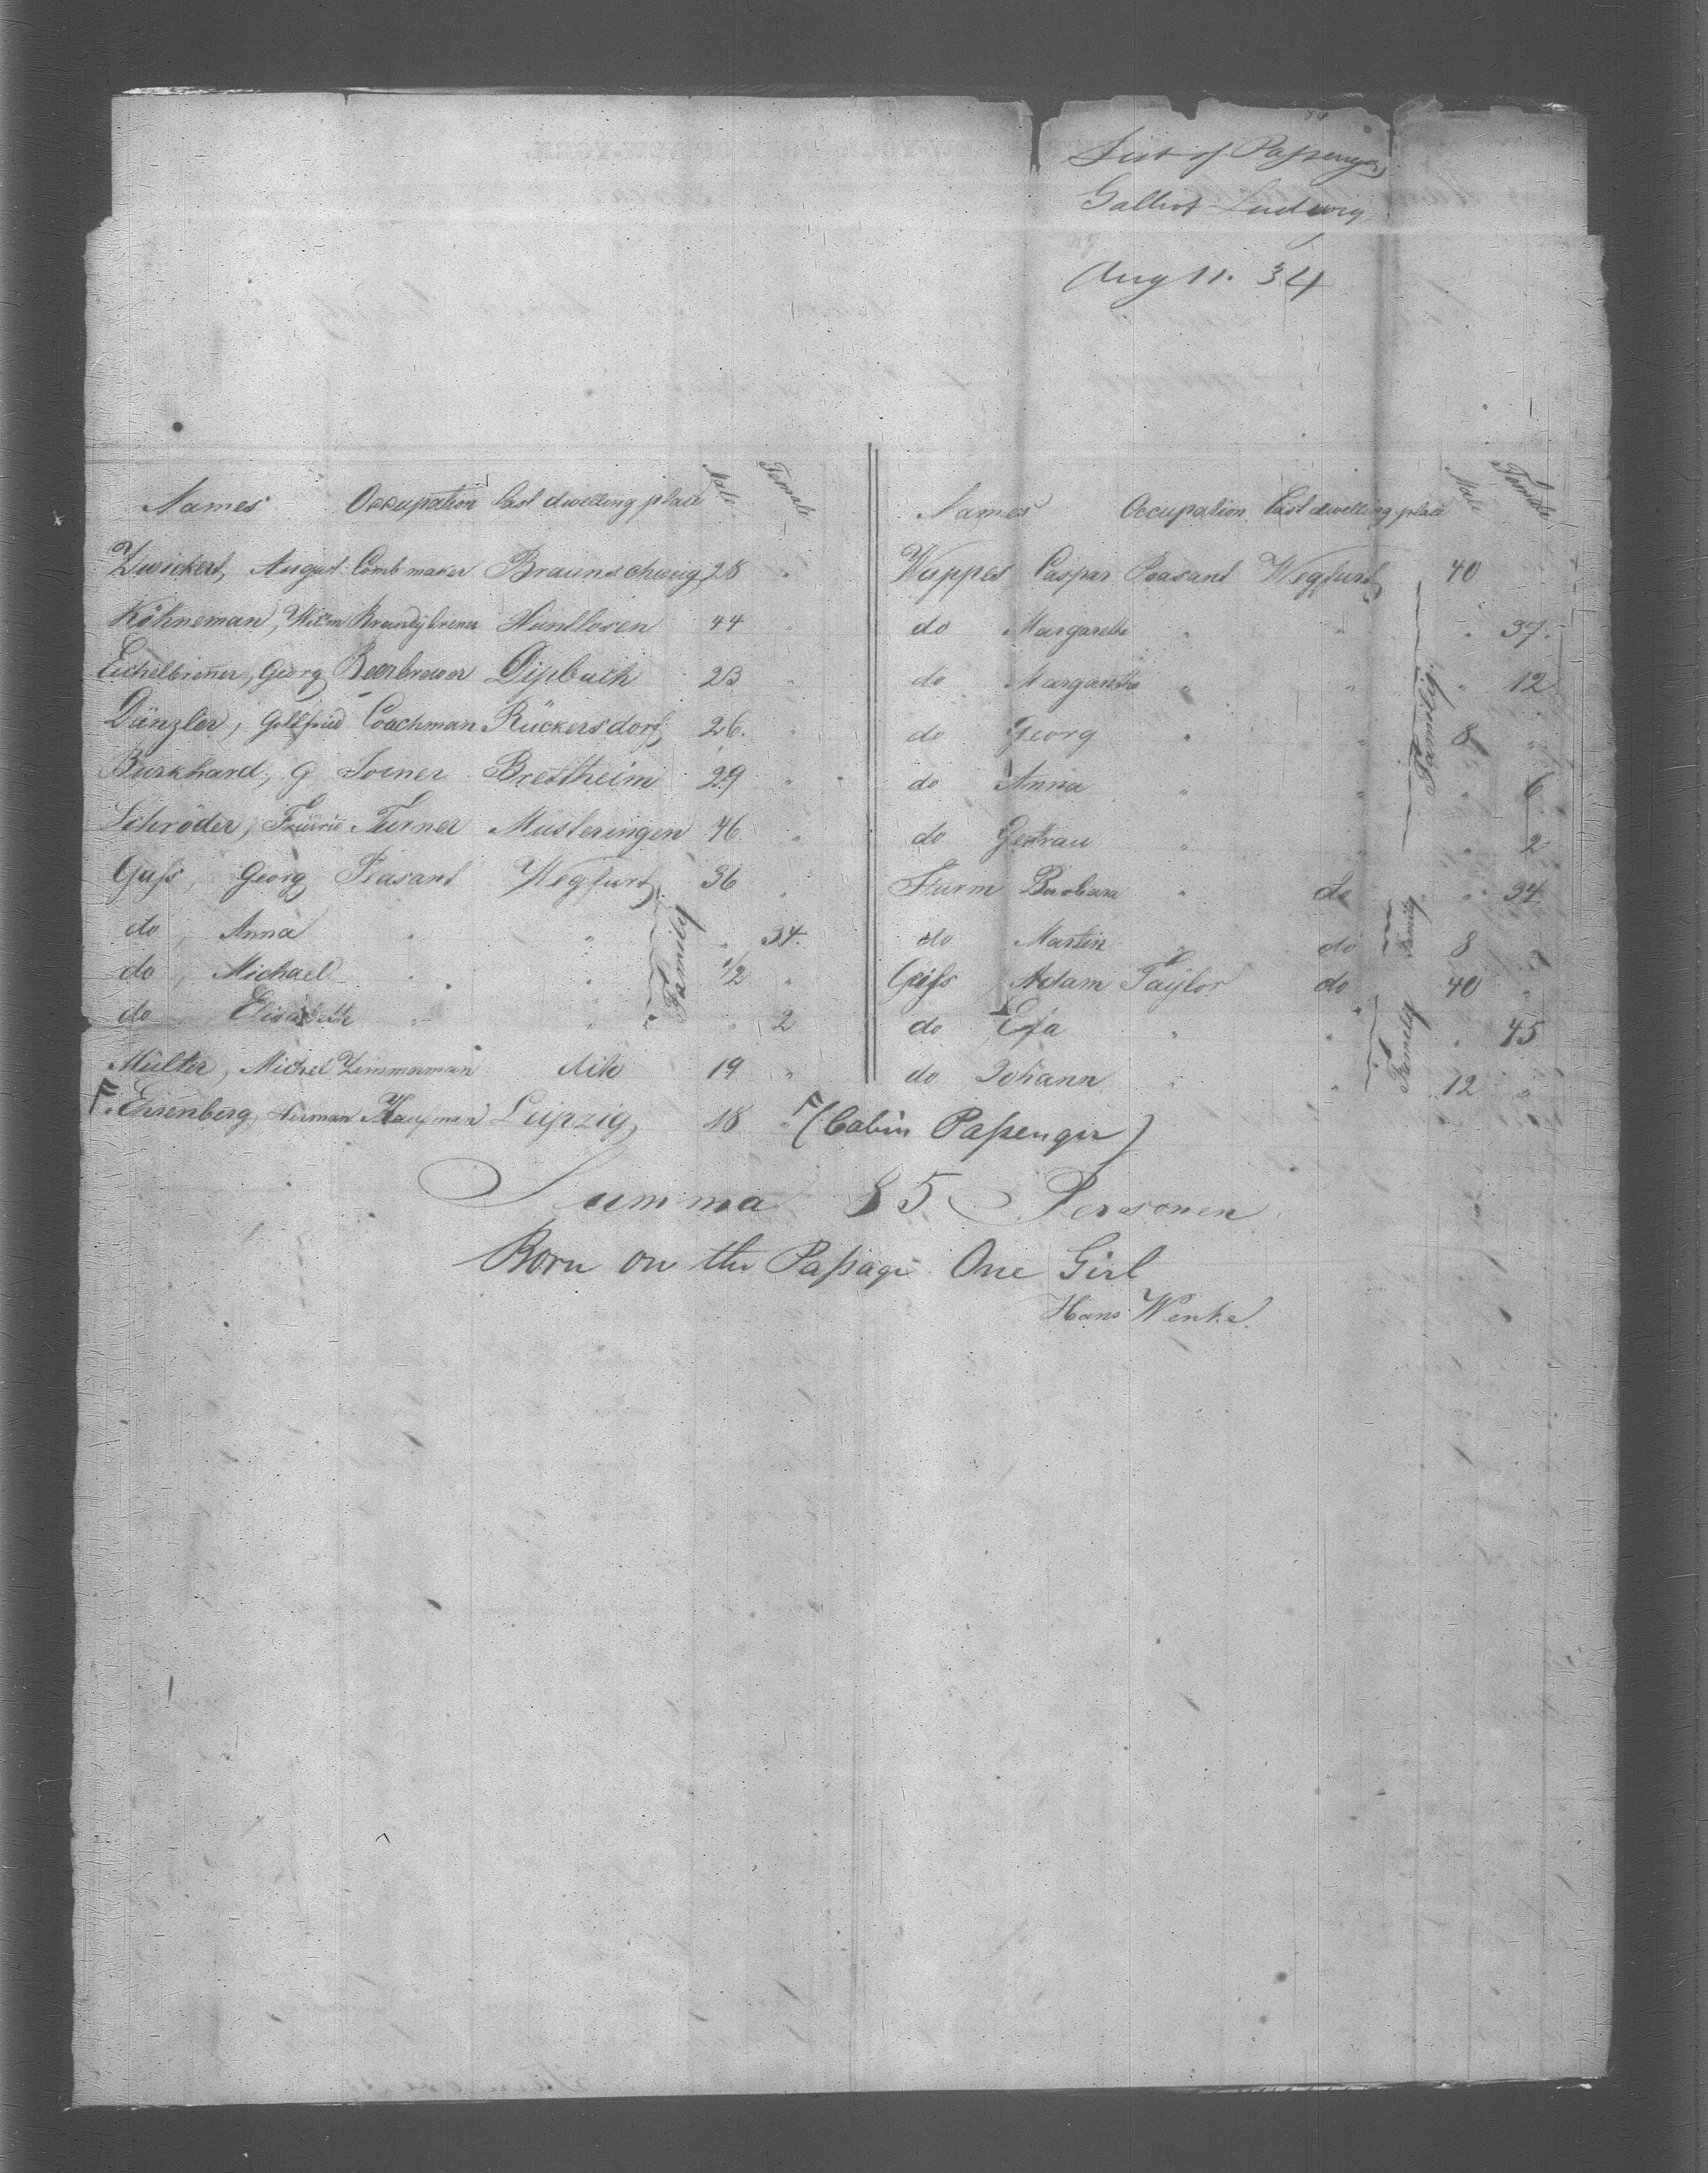 List of Passengers
Galliot Ludwig
Aug 11. 34
Names Occupation Last dwelling place Male Female
Zwickert, August Comb maker Braunschweig 28 "
Köhneman, Wilm Brandybrener Huntlosen 44 "
Eichelbrönner, Georg Beerbrewer Dipbach 23 "
Dänzler, Gottfried Coachman Rückersdorf 26. "
Burkhard, G Joiner Brettheim 29 "
Schröder, Turner Musteringen 46 "
Gass, Georg Peasant Wegfurt 36 "
do, Anna " " " 34.
do, Michael " " 1/2 "
do Elisabetha " " " 2
Family
Müller, Michel Zimmerman dito 19 "
Ehrenberg, Herman Kaufman Leipzig, 18 "
Names Occupation Last dwelling place Male Female
Wappes Caspar Peasant Wegfurt 40
do Margaretha " " " 37.
do Margaretha " " " 12
do Georg " " 8 "
do Anna " " " 6
do Getrau " " " 2
Family
Sturm Barbara " do " 34
do Martin " do 8 "
Family
Geiss Adam Taylor do 40 "
do Efa " " " 45
do Johann " " 12 "
Family
(Cabin Passenger)
Summa 85 Personen
Born on the Passage One Girl
Hans Wenke.